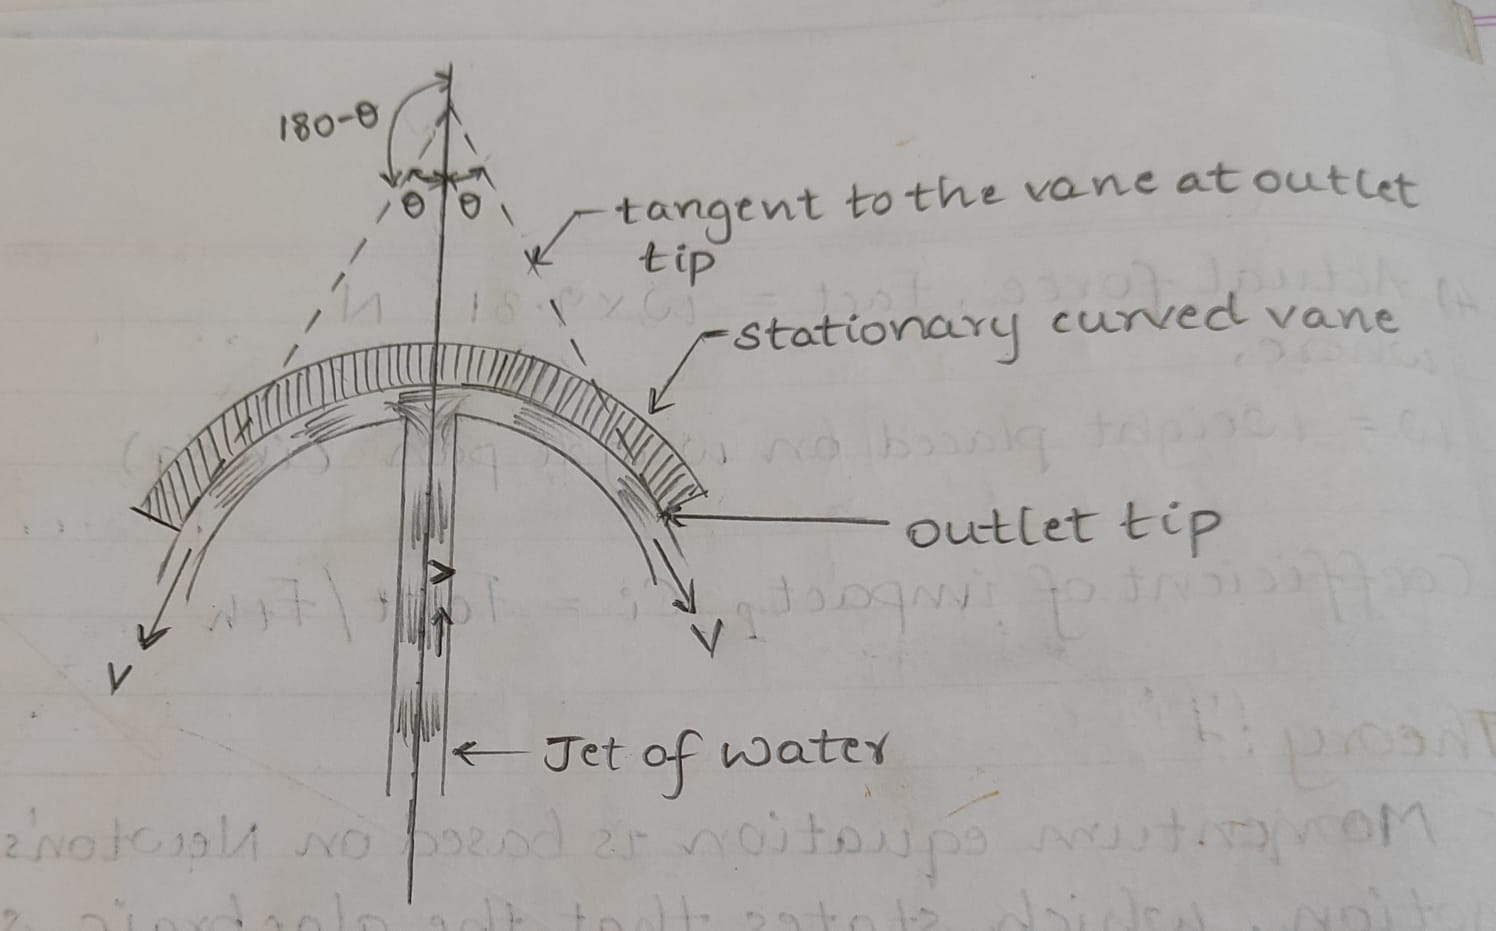 180-θ
θ θ
tangent to the vane at outlet
tip
stationary curved vane
outlet tip
V
V
V
Jet of water